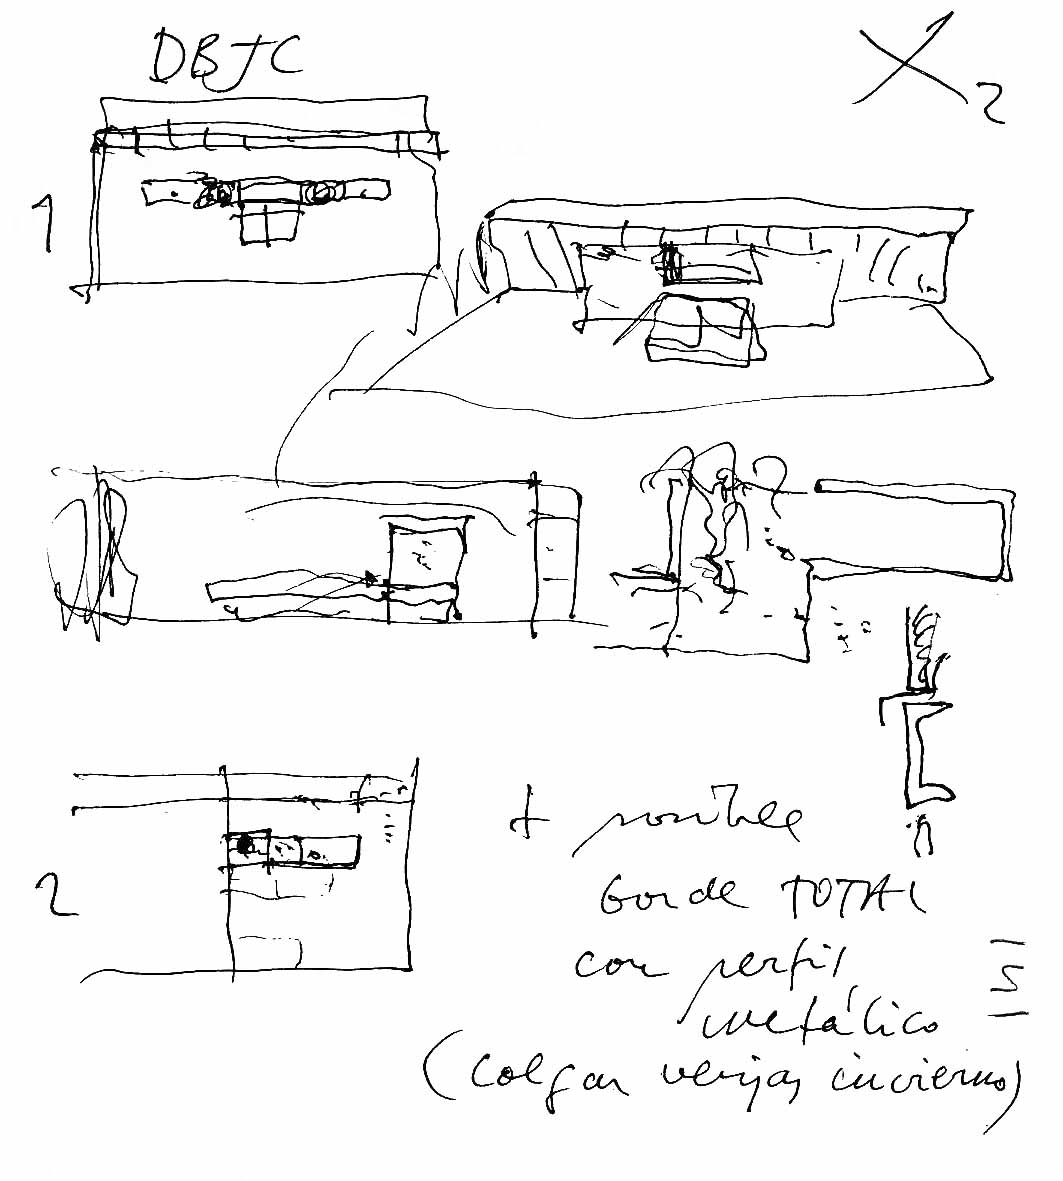 DBJC
X 2
1
2
+ posible
borde TOTAL
con perfil
metálico
(colgar verjas invierno)